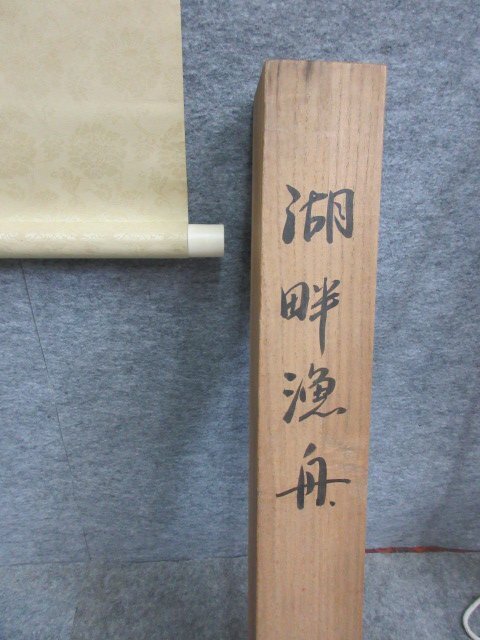 湖畔漁舟